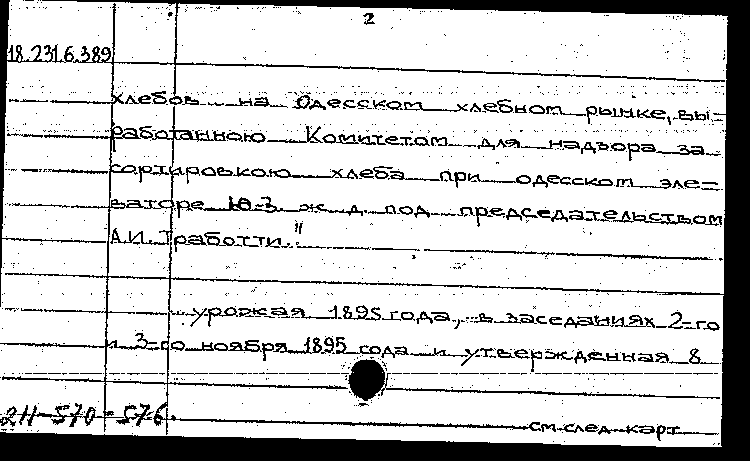 2
18.231.6.389
хлебов на Одесском хлебном рынке, вы=
работанною Комитетом для надзора за
сортировкою хлеба при одесском эле=
ваторе Ю-З ж д под председательством
А.И. Тработти."
урожая 1895 года, в заседаниях 2=го
и 3=го ноября 1895 года и утвержденная 8
211-570-576.
см. след карт